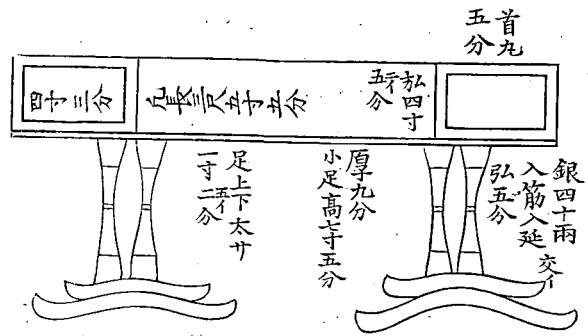 首丸
五分
弘四寸
五イ
五分
凡長三尺五寸五分
四寸三分
銀四十兩
入筋入延
交イ
弘五分
厚九分
小足高七寸五分
足上下太サ
五イ
一寸二分